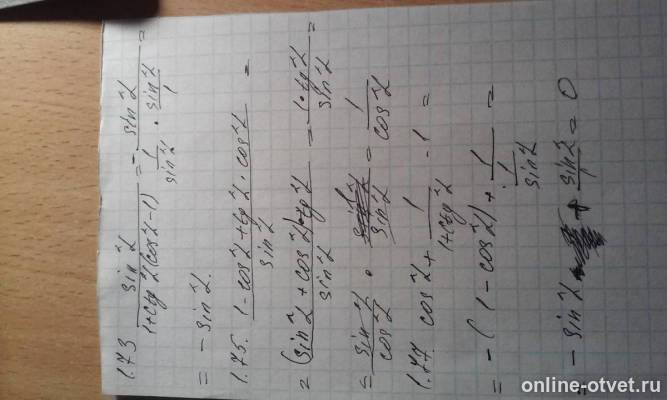 1.73 sin²α / 1+ctg²α(cos²α-1) = - sin²α / 1/sin²α · sin²α/1 =
= - sin²α.
1.75. 1-cos²α+tg²α·cos²α / sin²α =
= (sin²α+cos²α)·tg²α / sin²α = 1·tg²α / sin²α =
= sin²α / cos²α · / sin²α = 1 / cos²α
1.77 cos²α + 1 / 1+ctg²α - 1 =
= -(1-cos²α) + 1 / 1/sin²α =
= - sin²α + sin²α = 0
online-otvet.ru